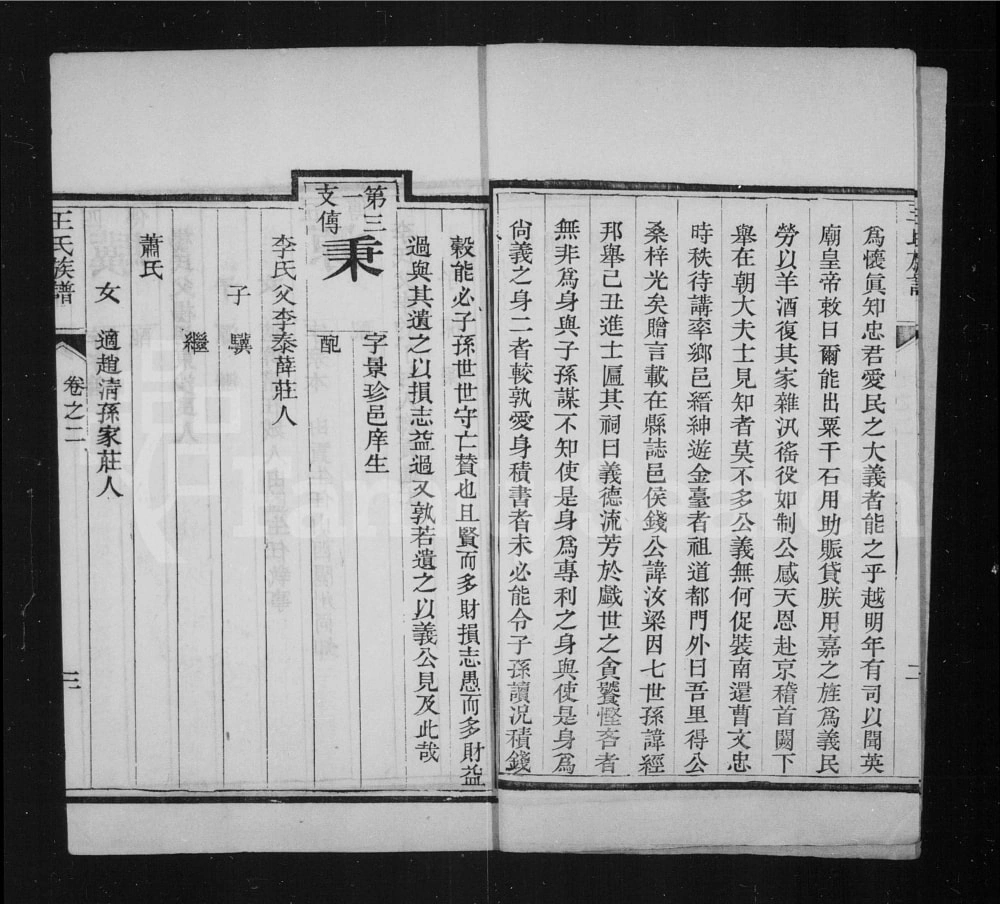 爲懷眞知忠君愛民之大義者能之乎越明年有司以聞英
廟皇帝敕曰爾能出粟千石用助賑貸朕用嘉之旌爲義民
勞以羊酒復其家雜汎徭役如制公感天恩赴京稽首闕下
舉在朝大夫士見知者莫不多公義無何促裝南還曹文忠
時秩待講率鄉邑縉紳遊金臺者祖道都門外曰吾里得公
桑梓光矣贈言載在縣誌邑侯錢公諱汝梁因七世孫諱經
邦舉己丑進士匾其祠曰義德流芳於戲世之貪饕慳吝者
無非爲身與子孫謀不知使是身爲專利之身與使是身爲
尙義之身二者較孰愛身積書者未必能令子孫讀况積錢
穀能必子孫世世守亡贊也且賢而多財損志愚而多財益
過與其遺之以損志益過又孰若遺之以義公見及此哉
第三
支傳
秉
字景珍邑庠生
配
李氏父李泰薛莊人
子 驥
繼
蕭氏
女 適趙清孫家莊人
王氏族譜
卷之二
三